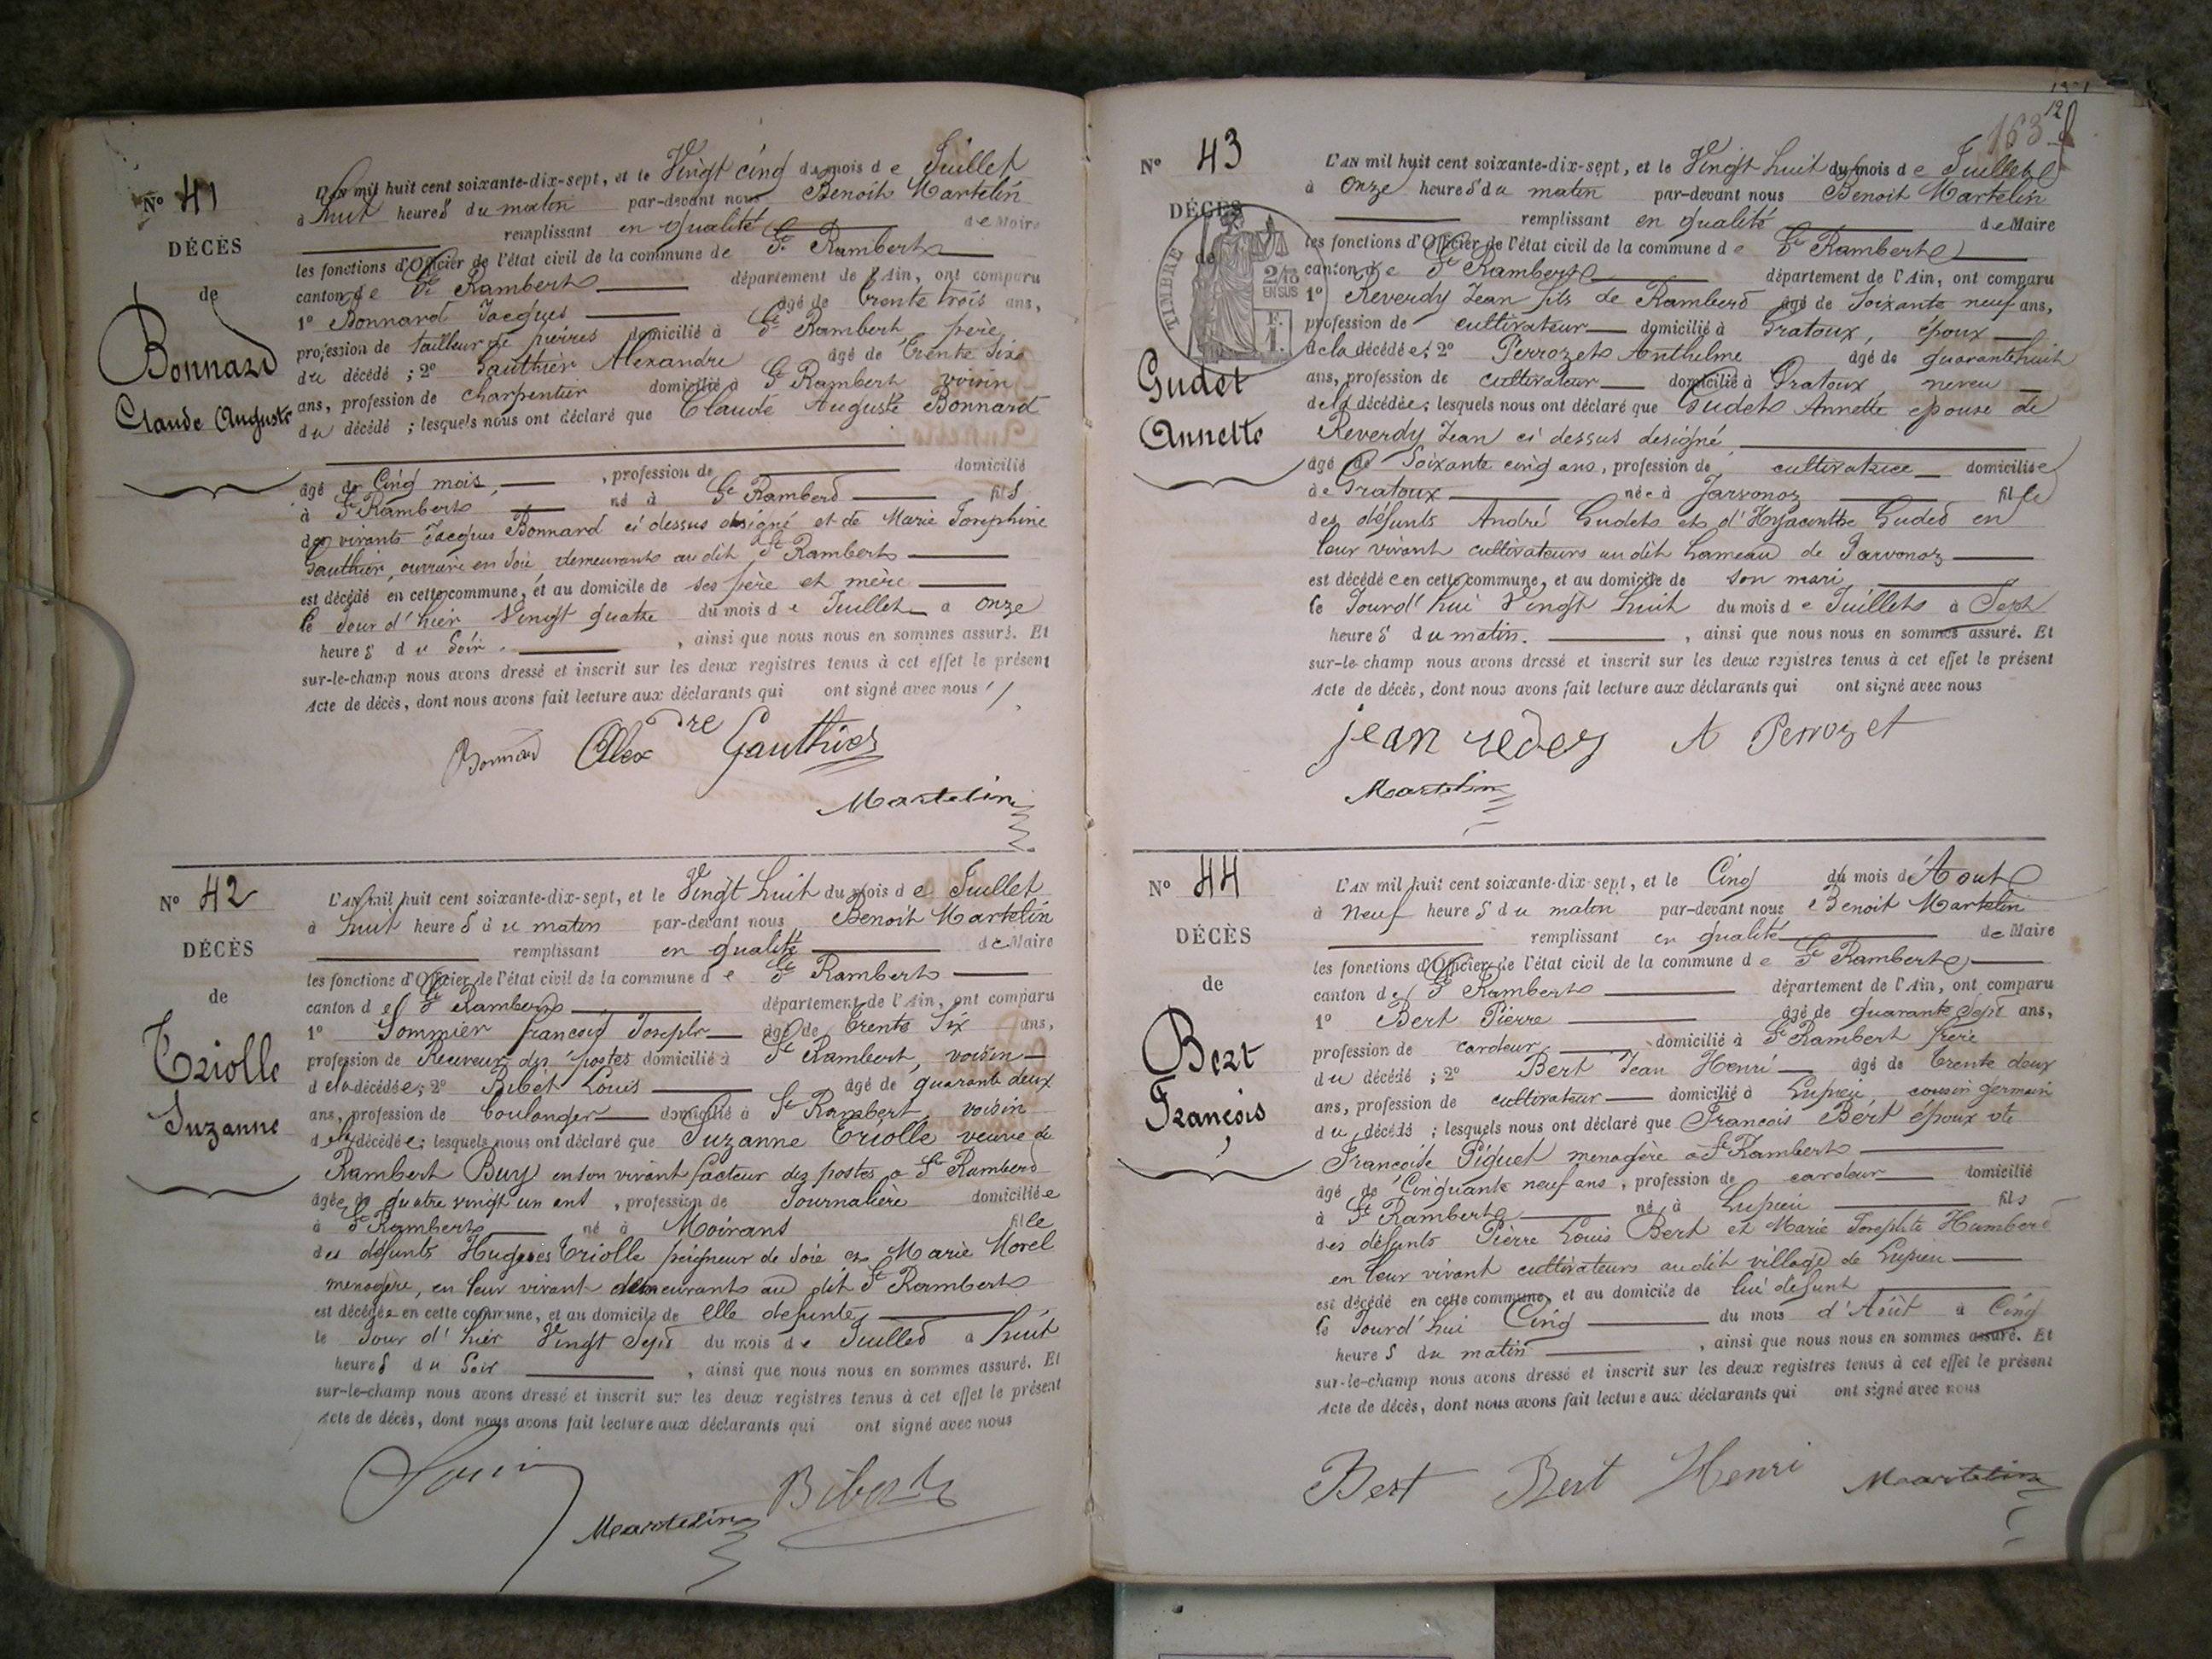 N° 41
DÉCÈS
de
Bonnard
Claude Auguste
L'AN mil huit cent soixante-dix-sept, et le Vingt cinq du mois de Juillet
à huit heures du matin par-devant nous Benoit Martelin
remplissant en qualité de Maire
les fonctions d'Officier de l'état civil de la commune de St Rambert
canton de St Rambert département de l'Ain, ont comparu
1° Bonnard Jacques âgé de trente trois ans,
profession de tailleur de pierres domicilié à St Rambert, père
du décédé ; 2° Gauthier Alexandre âgé de trente six
ans, profession de charpentier domicilié à St Rambert voisin
du décédé ; lesquels nous ont déclaré que Claude Auguste Bonnard
âgé de Cinq mois, profession de domicilié
à St Rambert né à St Rambert fils
des vivants Jacques Bonnard ci dessus désigné et de Marie Josephine
Gauthier, ouvrière en soie, demeurants au dit St Rambert
est décédé en cette commune, et au domicile de ses père et mère
le Jour d'hier Vingt quatre du mois de Juillet à onze
heures du Soir, ainsi que nous nous en sommes assuré. Et
sur-le-champ nous avons dressé et inscrit sur les deux registres tenus à cet effet le présent
Acte de décès, dont nous avons fait lecture aux déclarants qui ont signé avec nous
Bonnard Alexdre Gauthier
Martelin
N° 42
DÉCÈS
de
Triolle
Suzanne
L'AN mil huit cent soixante-dix-sept, et le Vingt huit du mois de Juillet
à huit heures du matin par-devant nous Benoit Martelin
remplissant en qualité de Maire
les fonctions d'Officier de l'état civil de la commune de St Rambert
canton de St Rambert département de l'Ain, ont comparu
1° Sommier françois Joseph âgé de trente Six ans,
profession de Receveur des postes domicilié à St Rambert, voisin
de la décédée; 2° Bibet Louis âgé de quarante deux
ans, profession de boulanger domicilié à St Rambert, voisin
de la décédée; lesquels nous ont déclaré que Suzanne Triolle veuve de
Rambert Buy en son vivant facteur des postes à St Rambert
âgée de quatre vingt un ans, profession de Journalière domiciliée
à St Rambert né à Moirans fille
des défunts Hugues Triolle peigneur de soie et Marie Morel
menagère, en leur vivant demeurants au dit St Rambert
est décédée en cette commune, et au domicile de elle defunte,
le Jour d'hier Vingt Sept du mois de Juillet à huit
heures du Soir, ainsi que nous nous en sommes assuré. Et
sur-le-champ nous avons dressé et inscrit sur les deux registres tenus à cet effet le présent
Acte de décès, dont nous avons fait lecture aux déclarants qui ont signé avec nous
Martelin
163
N° 43
DÉCÈS
de
TIMBRE
2/10
EN SUS
Gudet
Annette
L'AN mil huit cent soixante-dix-sept, et le Vingt huit du mois de Juillet
à onze heures du matin par-devant nous Benoit Martelin
remplissant en qualité de Maire
les fonctions d'Officier de l'état civil de la commune de St Rambert
canton de St Rambert département de l'Ain, ont comparu
1° Reverdy Jean fils de Rambert âgé de Soixante neuf ans,
profession de cultivateur domicilié à Gratoux, époux
de la décédée; 2° Perrozet Anthelme âgé de quarante huit
ans, profession de cultivateur domicilié à Gratoux, neveu
de la décédée; lesquels nous ont déclaré que Gudet Annette epouse de
Reverdy Jean ci dessus designé
âgé de Soixante cinq ans, profession de cultivatrice domiciliée
à Gratoux née à Javornoz fille
des défunts André Gudet et d'Hyacinthe Gudet en
leur vivant cultivateurs au dit hameau de Javornoz
est décédée en cette commune, et au domicile de son mari,
le Jourd'hui Vingt huit du mois de Juillet à Sept
heures du matin., ainsi que nous nous en sommes assuré. Et
sur-le-champ nous avons dressé et inscrit sur les deux registres tenus à cet effet le présent
Acte de décès, dont nous avons fait lecture aux déclarants qui ont signé avec nous
jean A Perrozet
Martelin
N° 44
DÉCÈS
de
Bert
François
L'AN mil huit cent soixante-dix-sept, et le Cinq du mois d'Aout
à neuf heures du matin par-devant nous Benoit Martelin
remplissant en qualité de Maire
les fonctions d'Officier de l'état civil de la commune de St Rambert
canton de St Rambert département de l'Ain, ont comparu
1° Bert Pierre âgé de quarante sept ans,
profession de cardeur domicilié à St Rambert frère
du décédé ; 2° Bert Jean Henri âgé de trente deux
ans, profession de cultivateur domicilié à Lupieu, cousin germain
du décédé ; lesquels nous ont déclaré que Francois Bert époux de
Francoise Piquet menagère à St Rambert
âgé de Cinquante neuf ans, profession de cardeur domicilié
à St Rambert né à Lupieu fils
des défunts Pierre Louis Bert et Marie Josephte Humbert
en leur vivant cultivateurs au dit village de Lupieu
est décédé en cette commune, et au domicile de lui défunt
le Jourd'hui Cinq du mois d'Août à Cinq
heures du matin, ainsi que nous nous en sommes assuré. Et
sur-le-champ nous avons dressé et inscrit sur les deux registres tenus à cet effet le présent
Acte de décès, dont nous avons fait lecture aux déclarants qui ont signé avec nous
Bert Bert Henri Martelin